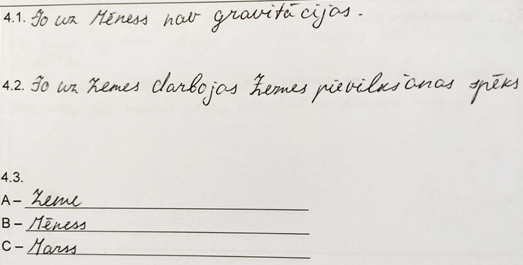 4.1. Jo uz Mēness nav gravitācijas.
4.2. Jo uz Zemes darbojas Zemes pievilkšanas spēks
4.3.
A – Zeme
B – Mēness
C – Marss